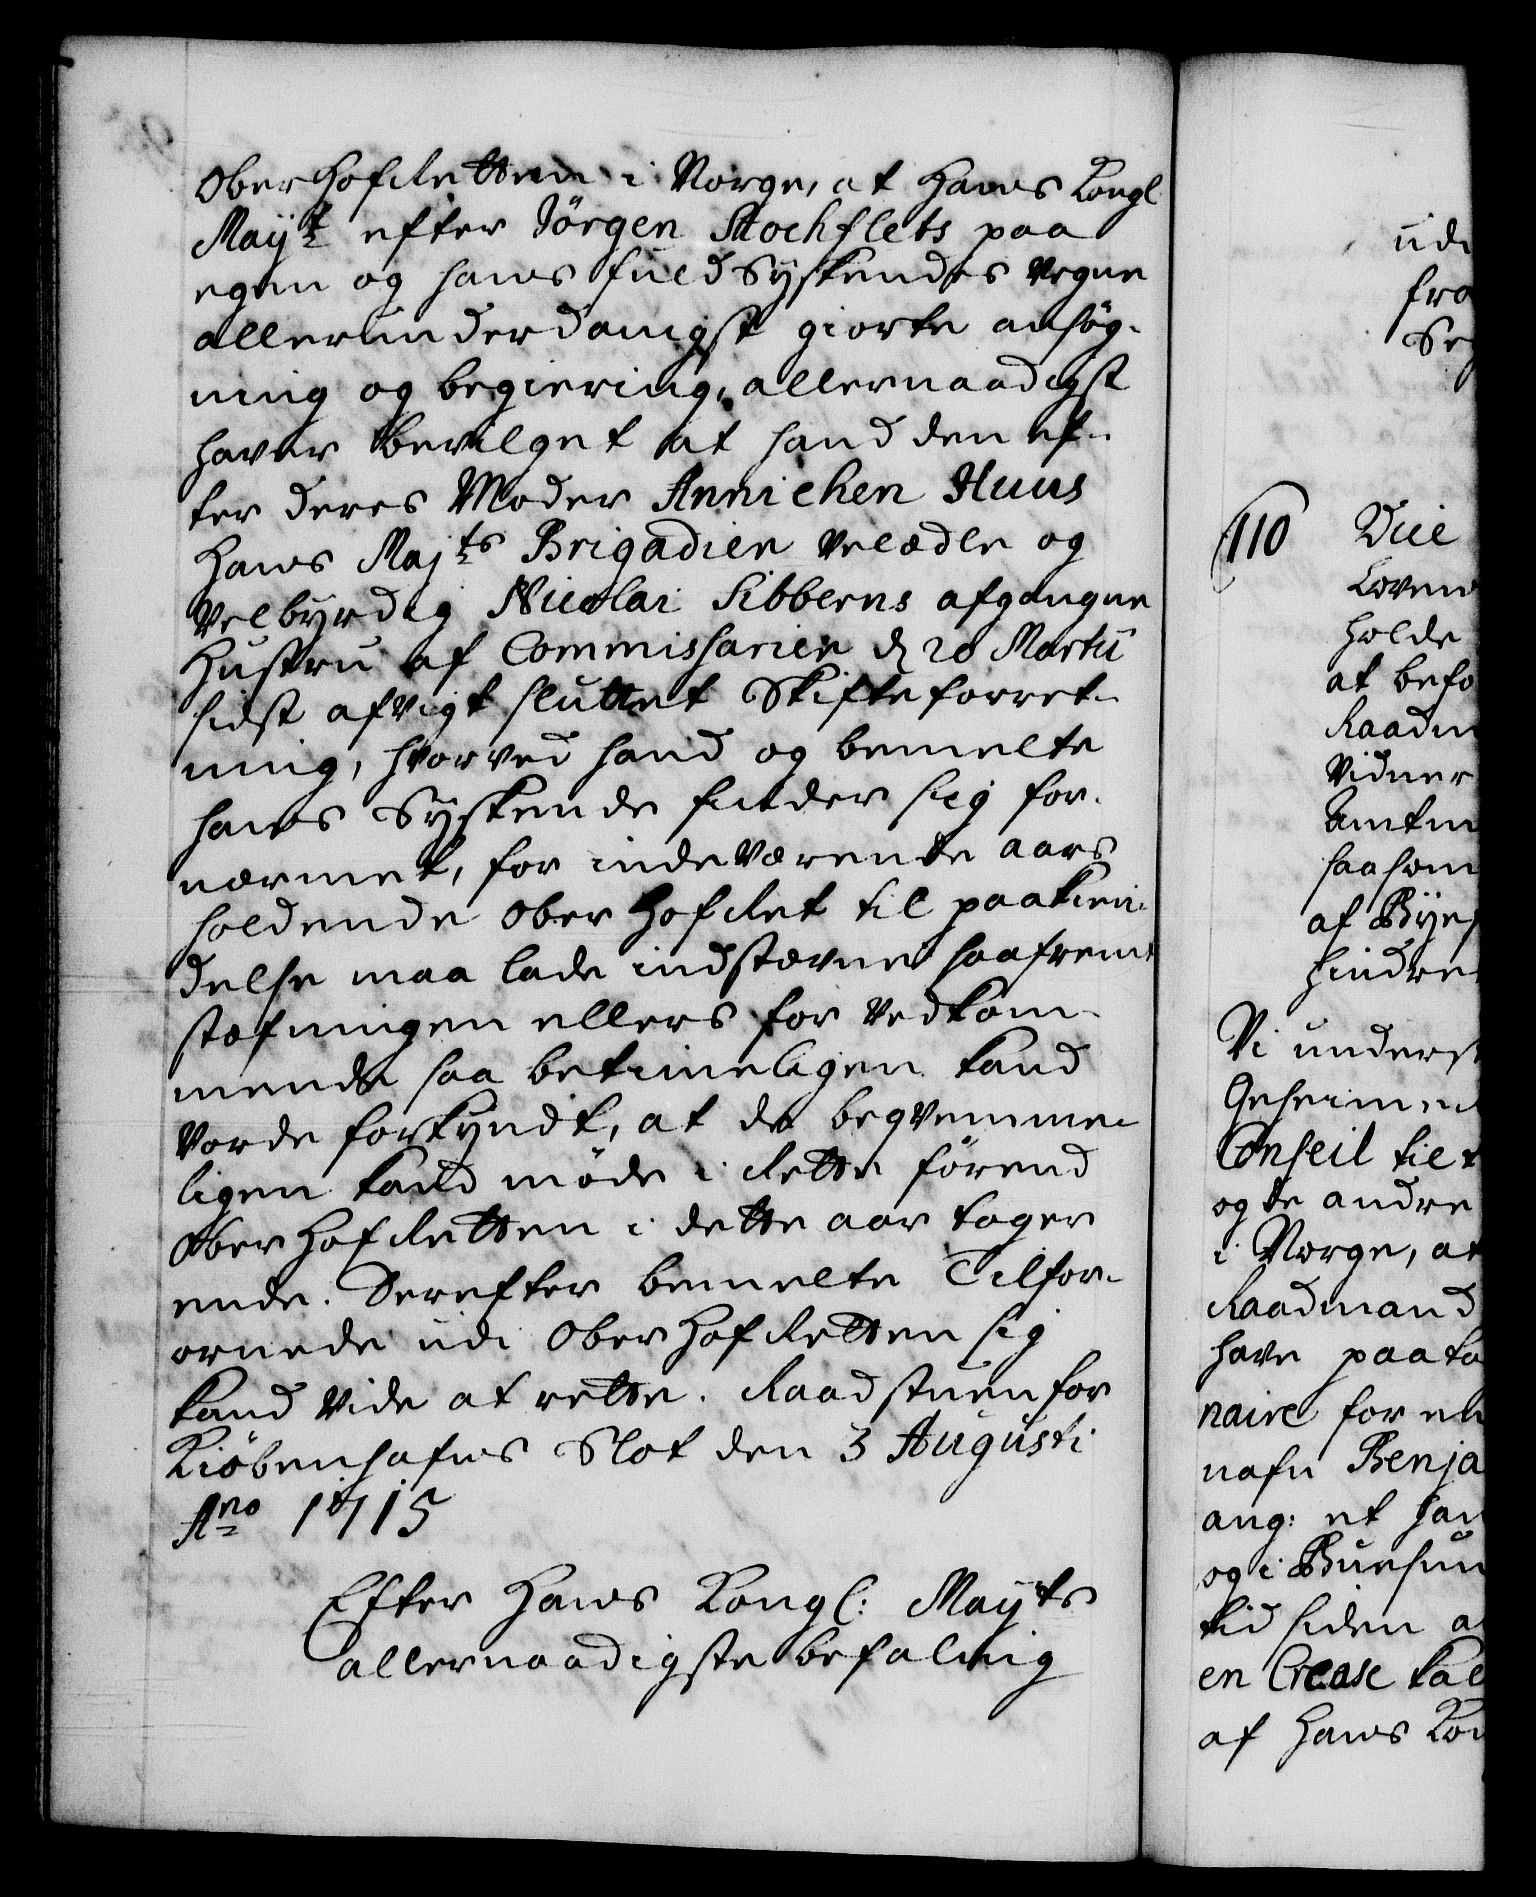 Ober Hof Retten i Norge, at Hans Kongl
Mayt efter Jörgen Stochflets paa
egen og hans fuld Syskendes Vegne
allerunderdanigst giorte ansög-
ning og begiering, allernaadigst
haver bevilget at hand den ef-
ter deres Moder Annichen Huus
Hans Majts Brigadier Velædle og
Velbyrdig Nicolai Sibberns afgangne
Hustru af Commissarier d 20 Martii
sidst afvigt sluttet Skifteforret-
ning, hvorved hand og bemelte
hans Syskende finder sig for-
nærmet, for indeværende aars
holdende Ober Hof Ret til paakien-
delse maa lade indstævne saafremt
stæfningen ellers for Vedkom-
mende saa betimeligen kand
Vorde forkyndt, at de beqvemme-
ligen kand möde i Rette förend
Ober Hof Retten i dette aar tager
ende. Derefter bemelte Tilfor-
ornede udi Ober Hof Retten sig
kand Vide at rette. Raadstuen for
Kiöbenhafns Slot den 3 Augusti
Ano 1715
Efter Hans Kongl: Mayts
allernaadigste befaling
udi
fra
110 Vice
Loven
holde
at befo
Raadm
Vidner
Amtm
saasom
af Bye
hindre
Vi underst
Geheime
Conseil til
og de andre
i Norge, at
Raadmand
have paata
naire for en
nafn Benja
ang: et han
og i Buesun
tid siden a
en Crease kal
af Hans Kon